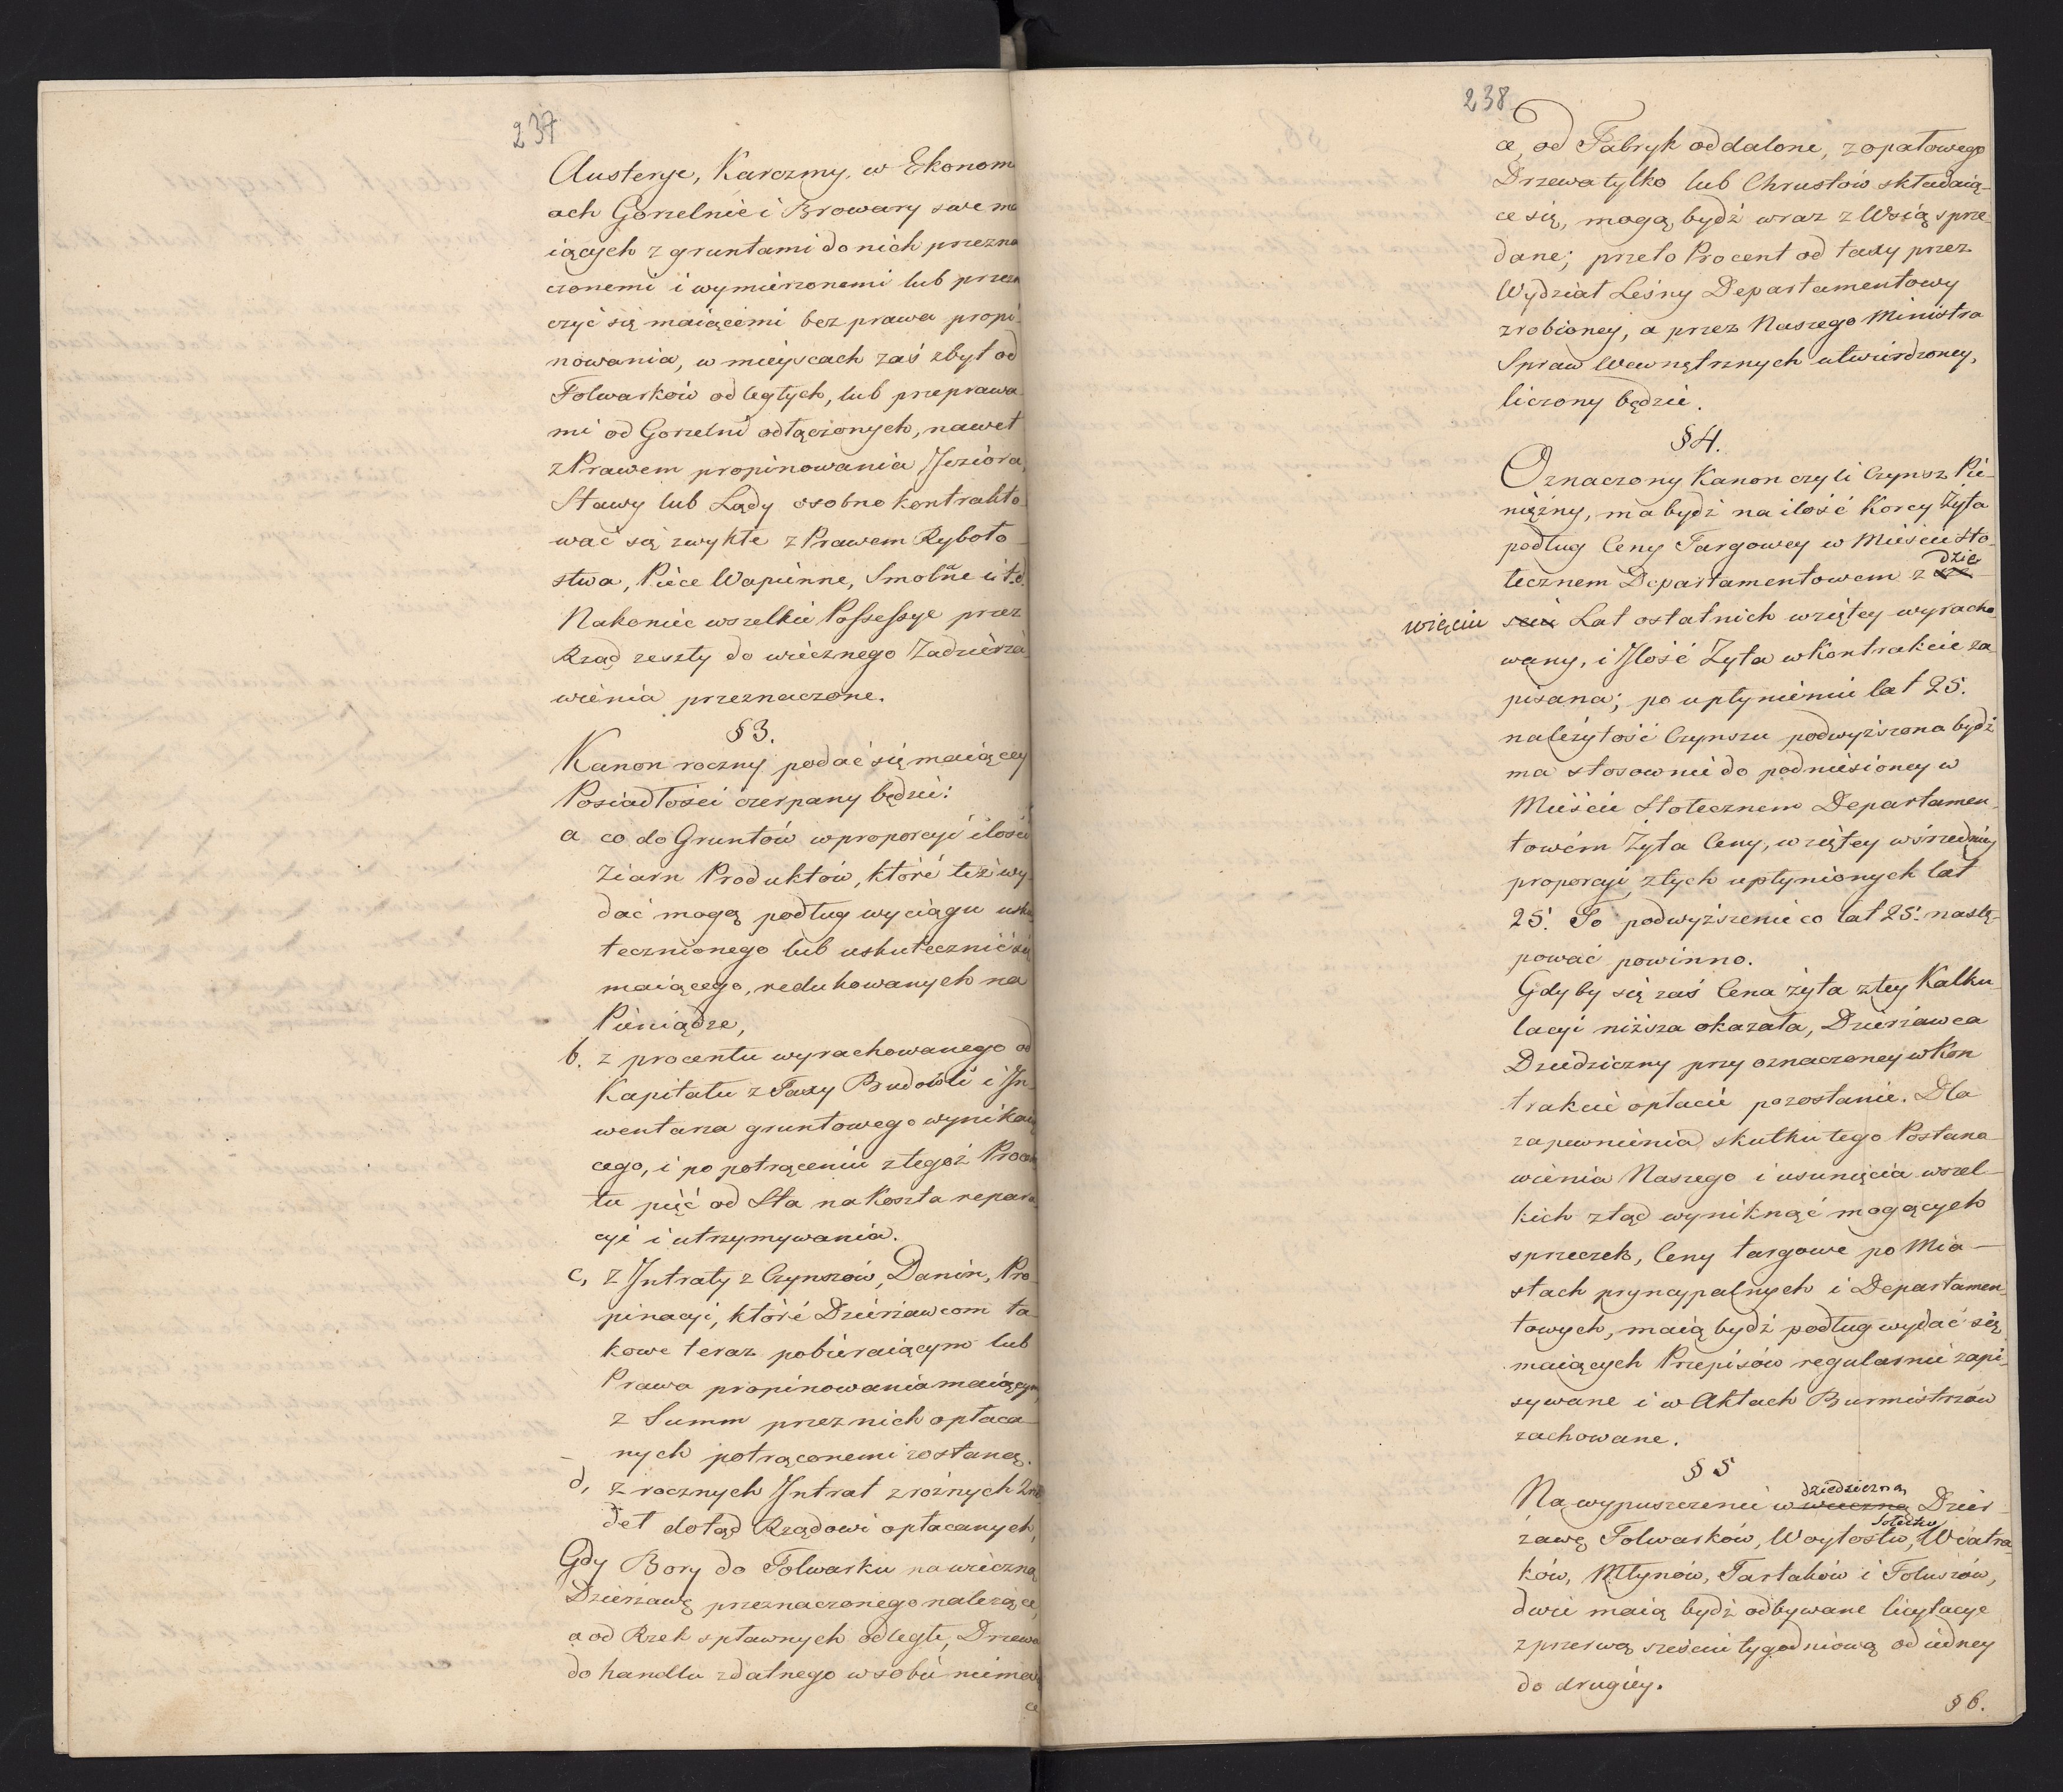 237
Austerye, Karczmy, w Ekonom
ach Gorzelnie i Browary swe ma
iących z gruntami do nich przezna
czonemi i wymierzonemi lub przezn
czyć się maiącemi bez prawa propi-
nowania, w mieyscach zaś zbyt od
Folwarków odległych, lub przeprawa-
mi od Gorzelni odłączonych, nawet
z Prawem propinowania Jeziora,
Stawy lub Lądy osobno kontrakto-
wać się zwykłe z Prawem Ryboło-
stwa, Piece Wapienne, Smolne i t.d.
Nakoniec wszelkie Possessye przez
Rząd reszty do wiecznego Zadzierża-
wienia przeznaczone.
§ 3.
Kanon roczny podać się maiącey
Posiadłości czerpany będzie:
a co do Gruntów w proporcyi ilości
Ziarn Produktów, które też wy-
dać mogą podług wyciągu usku
tecznionego lub uskutecznić się
maiącego, redukowanych na
Pieniądze,
b. z procentu wyrachowanego od
Kapitału z Taxy Budowli i In-
wentarza gruntowego wynikaią
cego, i po potrąceniu z tegoż Procen
tu pięć od Sta na Koszta repara
cyi i utrzymywania.
c, z Intraty z Czynszów, Danin, Pro-
pinacyi, które Dzierżawcom ta-
kowe teraz pobieraiącym lub
Prawo propinowania maiącym,
z Summ przez nich opłaca-
nych potrąconemi zostaną.
d, z rocznych Intrat z różnych Źró
deł dotąd Rządowi opłacanych,
Gdy Bory do Folwarku na wieczną
Dzierżawę przeznaczonego należące,
a od Rzek spławnych odległe, Drzewa
do handlu zdatnego w sobie niemaią
ce
238
ce, od Fabryk oddalone, z opałowego
Drzewa tylko lub Chrustów składaią-
ce się, mogą bydź wraz z Wsią sprze-
dane; przeto Procent od taxy przez
Wydział Leśny Departamentowy
zrobioney, a przez Naszego Ministra
Spraw Wewnętrznych utwierdzoney,
liczony będzie.
§ 4.
Oznaczony Kanon czyli Czynsz Pie-
niężny, ma bydź na ilość Korcy Żyta
podług Ceny Targowey w Mieście Sto-
łecznem Departamentowem z dzie
więciu Lat ostatnich wziętey wyracho-
wany, i Ilość Żyta w Kontrakcie za-
pisana; po upłynieniu lat 25.
należytość Czynszu podwyższona bydź
ma stosownie do podniesioney w
Mieście Stołecznem Departamen-
towém Żyta Ceny, wziętey w średniey
proporcyi z tych upłynionych lat
25. To podwyższenie co lat 25. nastę-
pować powinno.
Gdyby się zaś Cena żyta z tey Kalku-
lacyi niższa okazała, Dzierżawca
Dziedziczny przy oznaczoney w Kon
trakcie opłacie pozostanie. Dla
zapewnienia skutku tego Postano-
wienia Naszego i usunięcia wszel-
kich ztąd wyniknąć mogących
sprzeczek, Ceny targowe po Mia-
stach pryncypalnych i Departamen-
towych, maią bydź podług wydać się
maiących Przepisów regularnie zapi-
sywane i w Aktach Burmistrzów
zachowane.
§ 5
dziedziczną
Na wypuszczenie w wieczną Dzier-
Sołectw
żawę Folwarków, Woytostw, Wiatra-
ków, Młynów, Tartaków i Foluszów,
dwie maią bydź odbywane licytacye
z przerwą sześciu tygodniową od iedney
do drugiey.
§ 6.